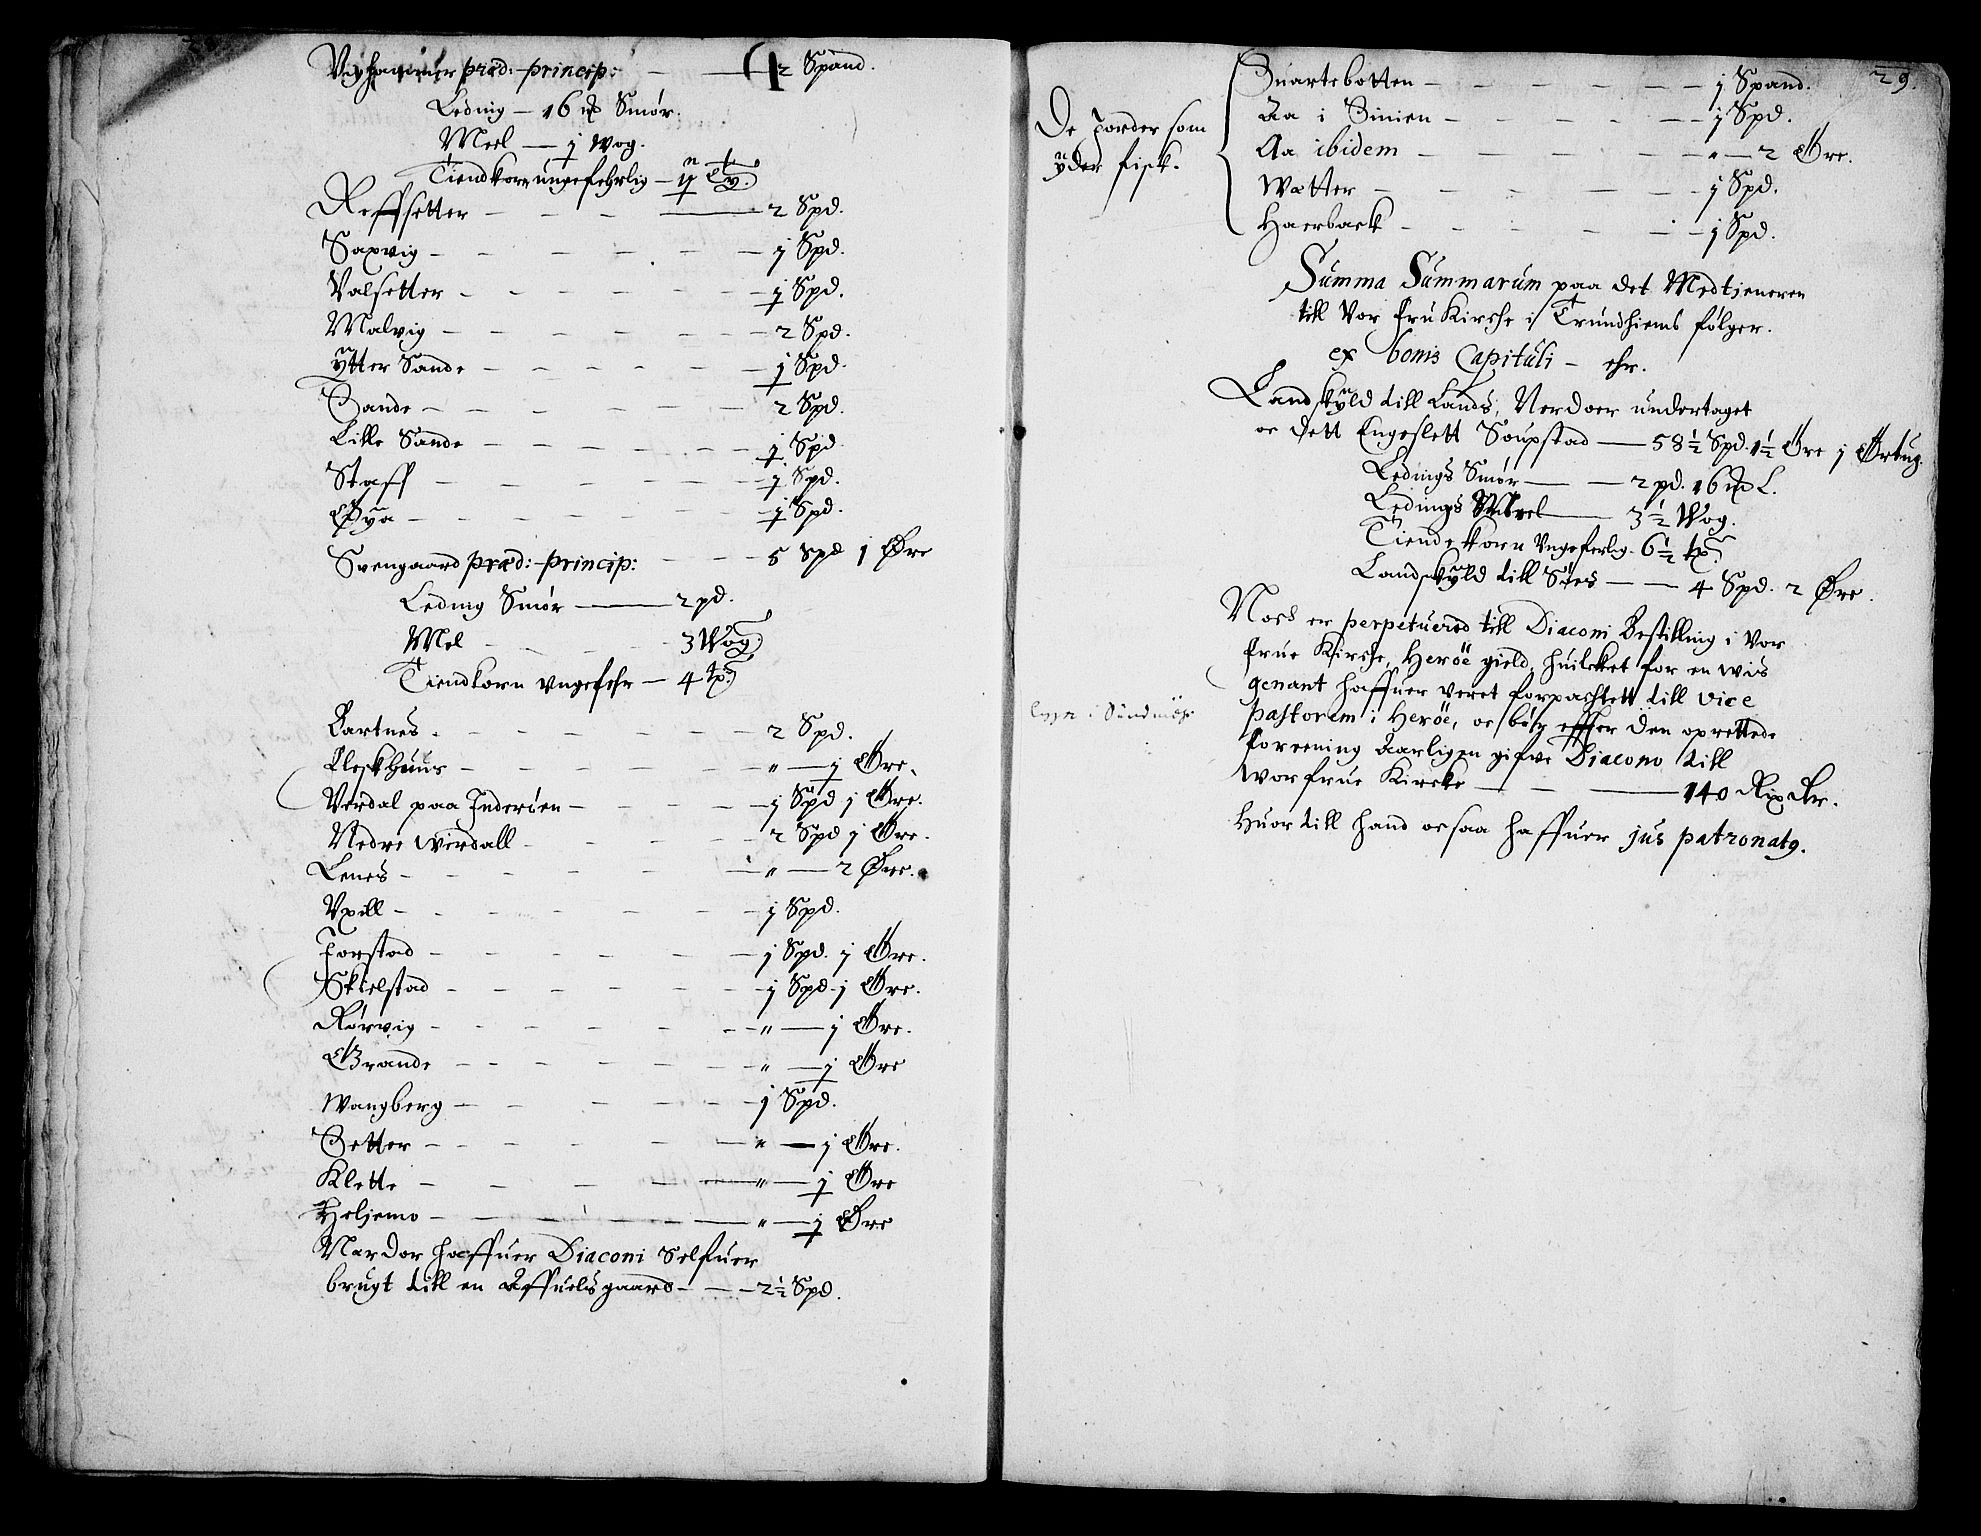 Vighammer præd: princip: — — 2 Spand.
Leding — 16 ℔ Smør.
Meel — j Wog.
Tiendkorn ungefehrlig — ij
Reffsetter — — — 2 Spd.
Saxvig — — — j Spd.
Valsetter — — — j Spd.
Malvig — — — 2 Spd.
Ytter Sande — — — j Spd.
Sande — — — 2 Spd.
Lille Sande — — — j Spd
Staff — — — j Spd.
Øya — — — j Spd.
Svengaard præd: princip: — — 5 Spd j Øre
Leding Smør — 2 pd.
Mel — 3 Wog
Tiendkorn vngefehr — 4 tp.
Bartnes — — — 2 Spd.
Kleskhuus — — — " — j Øre.
Verdal paa Inderøen — — — j Spd j Øre.
Nedre Werdall — — — 2 Spd j Øre.
Lenes — — — " — 2 Øre.
Vxill — — — j Spd.
Forstad — — — j Spd. j Øre.
Skielstad — — — j Spd. j Øre.
Rørvig — — — " — j Øre.
Grande — — — " — j Øre
Wangberg — — — j Spd.
Setter — — — " — j Øre.
Klette — — — " — j Øre
Heljemo — — — " — j Øre
Nardor haffuer Diaconi Selfuer
brugt till en Affuelsgaard — — 2½ Spd.
29.
De Jorder som
yder fisk.
Suartebotten — — — j Spand.
Aa i Sinien — — — j Spd.
Aa ibidem — — — " — 2 Øre.
Wætter — — — j Spd.
Haerback — — — j Spd.
Summa Summarum paa det Medtjeneren
till Vor fru Kirche i Trundhiems følger.
ex bonis Capituli — ehr.
Landskyld till Lands, Nerdoer undertaget
oc dett Engeslett Soupstad — 58½ Spd. 1½ Øre j Ørtug.
Ledings Smør — — 2 pd. 16 ℔ L.
Ledings Meel — 3½ Wog.
Tiendekorn Vngeferlig. 6½ tp.
Landskyld till Søes — — 4 Spd. 2 Øre.
Noch er perpetuered till Diaconi Bestilling i Vor
frue Kirche, Herøe gield, huilcket for en wis
genant haffuer veret forpachtett till vice
pastorem i Herøe, oc bør effter den oprettede
foreening Aarligen gifve Diacono till
Vorfrue Kircke — — — 140 Rix Dr.
Huor till hand ocsaa haffuer jus patronatq.
i Sundmør